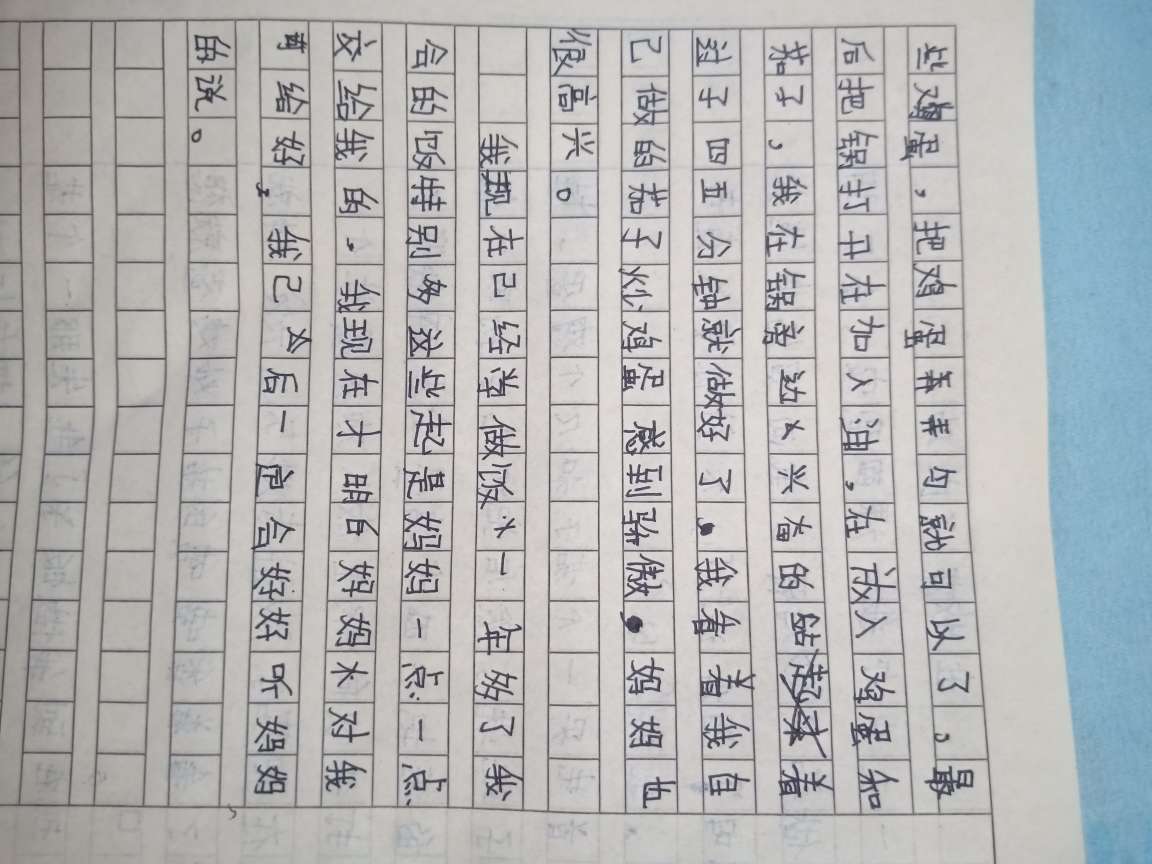 些鸡蛋，把鸡蛋弄弄匀就可以了，最
后把锅打开在加入油，在放入鸡蛋和
茄子，我在锅旁边兴奋的站着
过了四五分钟就做好了。我看着我自
己做的茄子炒鸡蛋感到骄傲。妈妈也
很高兴。
我现在已经学做饭一年多了我
会的饭特别多这些起是妈妈一点一点
交给我的。我现在才明白妈妈对我
给好，我已后一定会好好听妈妈
的说。